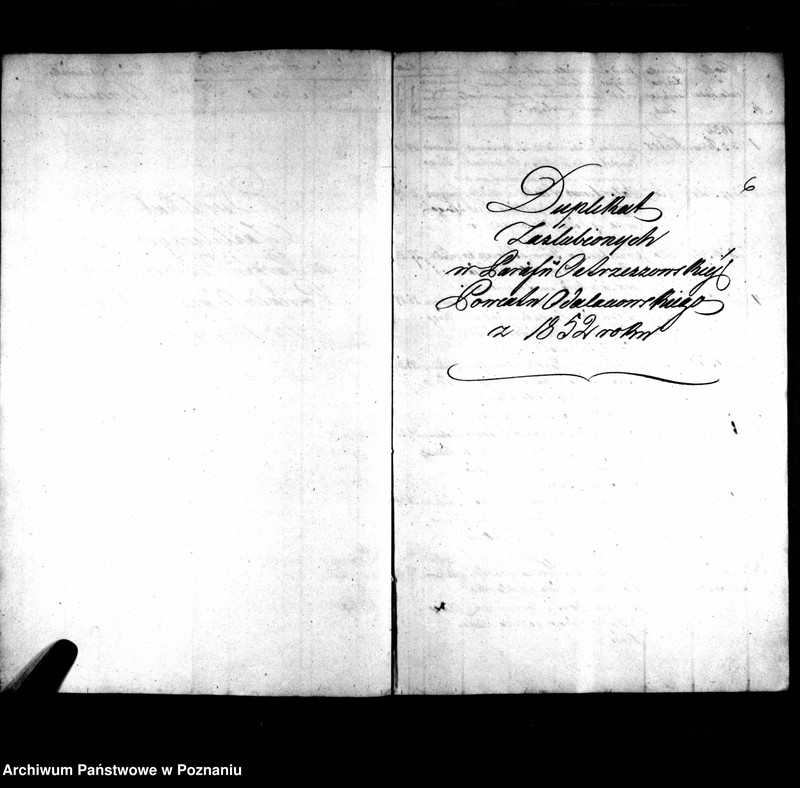 6
Duplikat
Zaślubionych
w Parafii Ostrzeszowskiéj
Powiatu Odalanowskiego
z 1852 roku
Archiwum Państwowe w Poznaniu